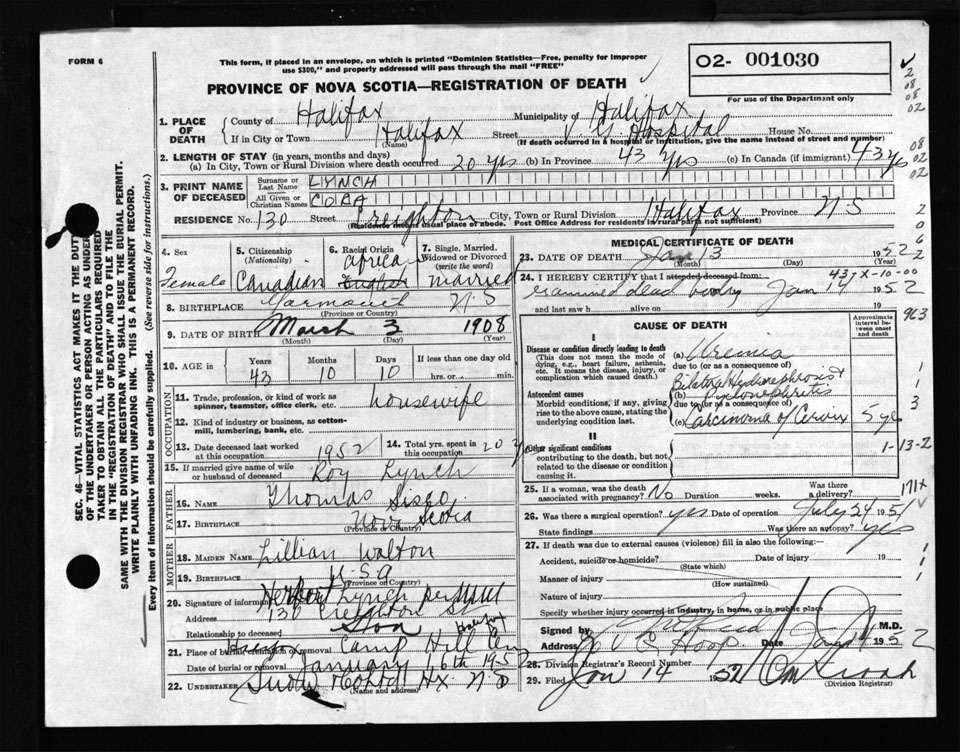 FORM 6
This form, if placed in an envelope, on which is printed "Dominion Statistics—Free, penalty for improper
use $300," and properly addressed will pass through the mail "FREE"
O2- 001030
For use of the Department only
PROVINCE OF NOVA SCOTIA—REGISTRATION OF DEATH
1. PLACE OF DEATH
County of Halifax Municipality of Halifax
If in City or Town Halifax Street V. G. Hospital House No.
(Name) (If death occurred in a hospital or institution, give the name instead of street and number)
2. LENGTH OF STAY (in years, months and days)
(a) In City, Town or Rural Division where death occurred 20 yrs (b) In Province 43 yrs (c) In Canada (if immigrant) 43 yrs
3. PRINT NAME OF DECEASED
Surname or Last Name LYNCH
All Given or Christian Names CORA
RESIDENCE No. 130 Street Creighton City, Town or Rural Division Halifax Province N-S
(Residence means usual place of abode. Post Office Address for residents in rural parts not sufficient)
4. Sex Female
5. Citizenship (Nationality) Canadian
6. Racial Origin African English
7. Single, Married, Widowed or Divorced (write the word) married
8. BIRTHPLACE Yarmouth N-S
(Province or Country)
9. DATE OF BIRTH March 3 1908
(Month) (Day) (Year)
10. AGE in Years 43 Months 10 Days 10 If less than one day old hrs. or min.
OCCUPATION
11. Trade, profession, or kind of work as spinner, teamster, office clerk, etc. housewife
12. Kind of industry or business, as cotton-mill, lumbering, bank, etc.
13. Date deceased last worked at this occupation 1952
14. Total yrs. spent in this occupation 20 yrs
15. If married give name of wife or husband of deceased Roy Lynch
FATHER
16. NAME Thomas Sisco
17. BIRTHPLACE Nova Scotia
(Province or Country)
MOTHER
18. MAIDEN NAME Lillian Walton
19. BIRTHPLACE U-S-A
(Province or Country)
20. Signature of informant Herbert Lynch
Address 130 Creighton St
Relationship to deceased Son
21. Place of burial, cremation or removal Camp Hill Halifax
Date of burial or removal January 16th 1952
22. UNDERTAKER Snow Hx N-S
(Name and address)
MEDICAL CERTIFICATE OF DEATH
23. DATE OF DEATH Jan 13 1952
(Month) (Day) (Year)
24. I HEREBY CERTIFY that I attended deceased from:
examined dead body Jan 14 1952
and last saw h alive on 19
CAUSE OF DEATH
Approximate interval between onset and death
I
Disease or condition directly leading to death
(This does not mean the mode of dying, e.g., heart failure, asthenia, etc. It means the disease, injury, or complication which caused death.)
(a) Uremia
due to (or as a consequence of)
Antecedent causes
Morbid conditions, if any, giving rise to the above cause, stating the underlying condition last.
(b) Bilateral Hydronephrosis & Pyelonephritis
due to (or as a consequence of)
(c) Carcinoma of Cervix 5 yrs
II
Other significant conditions
contributing to the death, but not related to the disease or condition causing it.
25. If a woman, was the death associated with pregnancy? No Duration weeks. Was there a delivery?
26. Was there a surgical operation? yes Date of operation July 24 1951
State findings Was there an autopsy? yes
27. If death was due to external causes (violence) fill in also the following:
Accident, suicide or homicide? Date of injury 19
(State which)
Manner of injury
(How sustained)
Nature of injury
Specify whether injury occurred in industry, in home, or in public place
Signed by M.D.
Address V G Hosp. Jan 14 1952
28. Division Registrar's Record Number
29. Filed Jan 14 1952
(Division Registrar)
SEC. 46—VITAL STATISTICS ACT MAKES IT THE DUTY
OF THE UNDERTAKER OR PERSON ACTING AS UNDER-
TAKER TO OBTAIN ALL THE PARTICULARS REQUIRED
IN THE "REGISTRATION OF DEATH" AND TO FILE THE
SAME WITH THE DIVISION REGISTRAR WHO SHALL ISSUE THE BURIAL PERMIT.
WRITE PLAINLY WITH UNFADING INK. THIS IS A PERMANENT RECORD.
Every item of information should be carefully supplied. (See reverse side for instructions.)
437X-10-00
963
1-13-2
171X